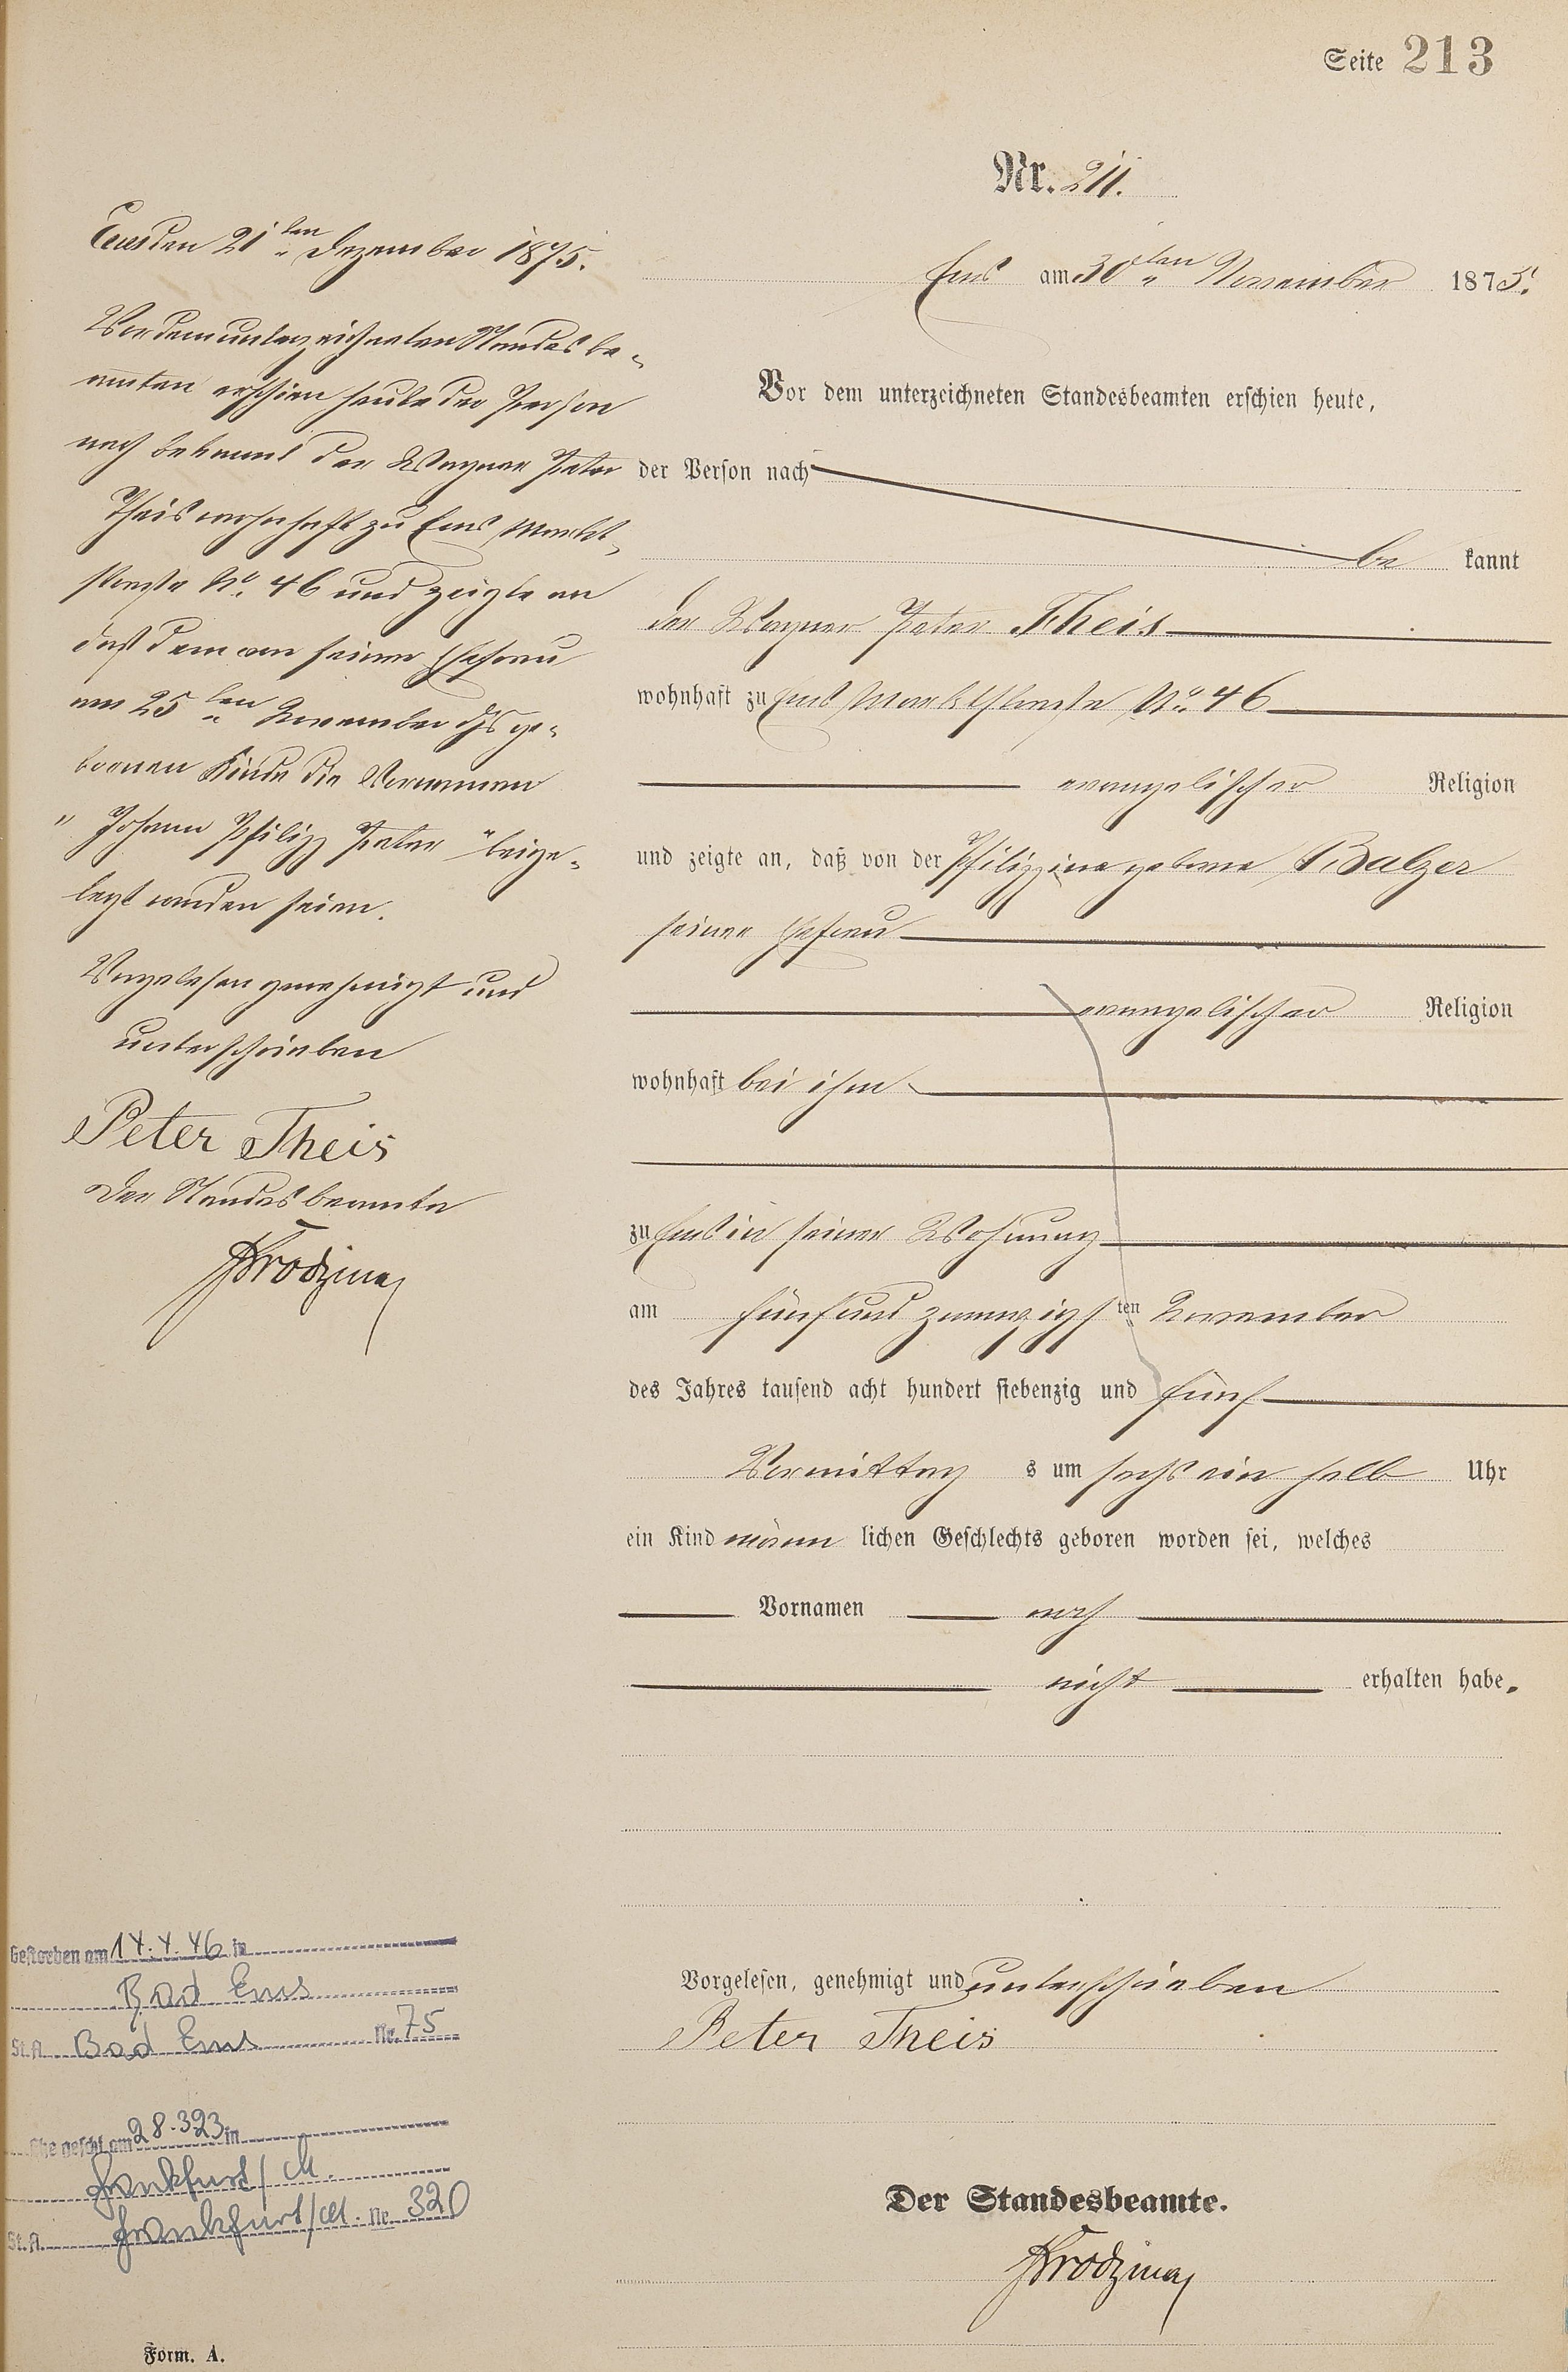 Seite 213
Nr. 211.
Ems am 30ten November 1875.
Vor dem unterzeichneten Standesbeamten erschien heute,
der Person nach
be kannt
der Wagner Peter Theis
wohnhaft zu Ems Marktstraße No. 46
evangelischer Religion
und zeigte an, daß von der Philippine geborne Balzer
seiner Ehefrau
evangelischer Religion
wohnhaft bei ihm
zu Ems in seiner Wohnung
am fünf und zwanzigsten November
des Jahres tausend acht hundert siebenzig und fünf
Vormittag s um sechs ein halb Uhr
ein Kind männ lichen Geschlechts geboren worden sei, welches
Vornamen noch
nicht erhalten habe.
Vorgelesen, genehmigt und unterschrieben
Peter Theis
Der Standesbeamte.
Ems den 21ten Dezember 1875.
Vor dem unterzeichneten Standesbe-
amten erschien heute der Person
nach bekannt der Wagner Peter
Theis wohnhaft zu Ems Markt-
straße No. 46 und zeigte an
daß dem von seiner Ehefrau
am 25ten November djs ge-
bornen Kinde die Vornamen
"Johann Philipp Peter" beige-
legt worden seien.
Vorgelesen genehmigt und
unterschrieben
Peter Theis
Der Standesbeamte
Gestorben am 14.4.46 in
Bad Ems
St.A. Bad Ems Nr. 75
Ehe geschl. am 28.3.23 in
Frankfurt/M.
St.A. Frankfurt/M. Nr. 320
Form. A.